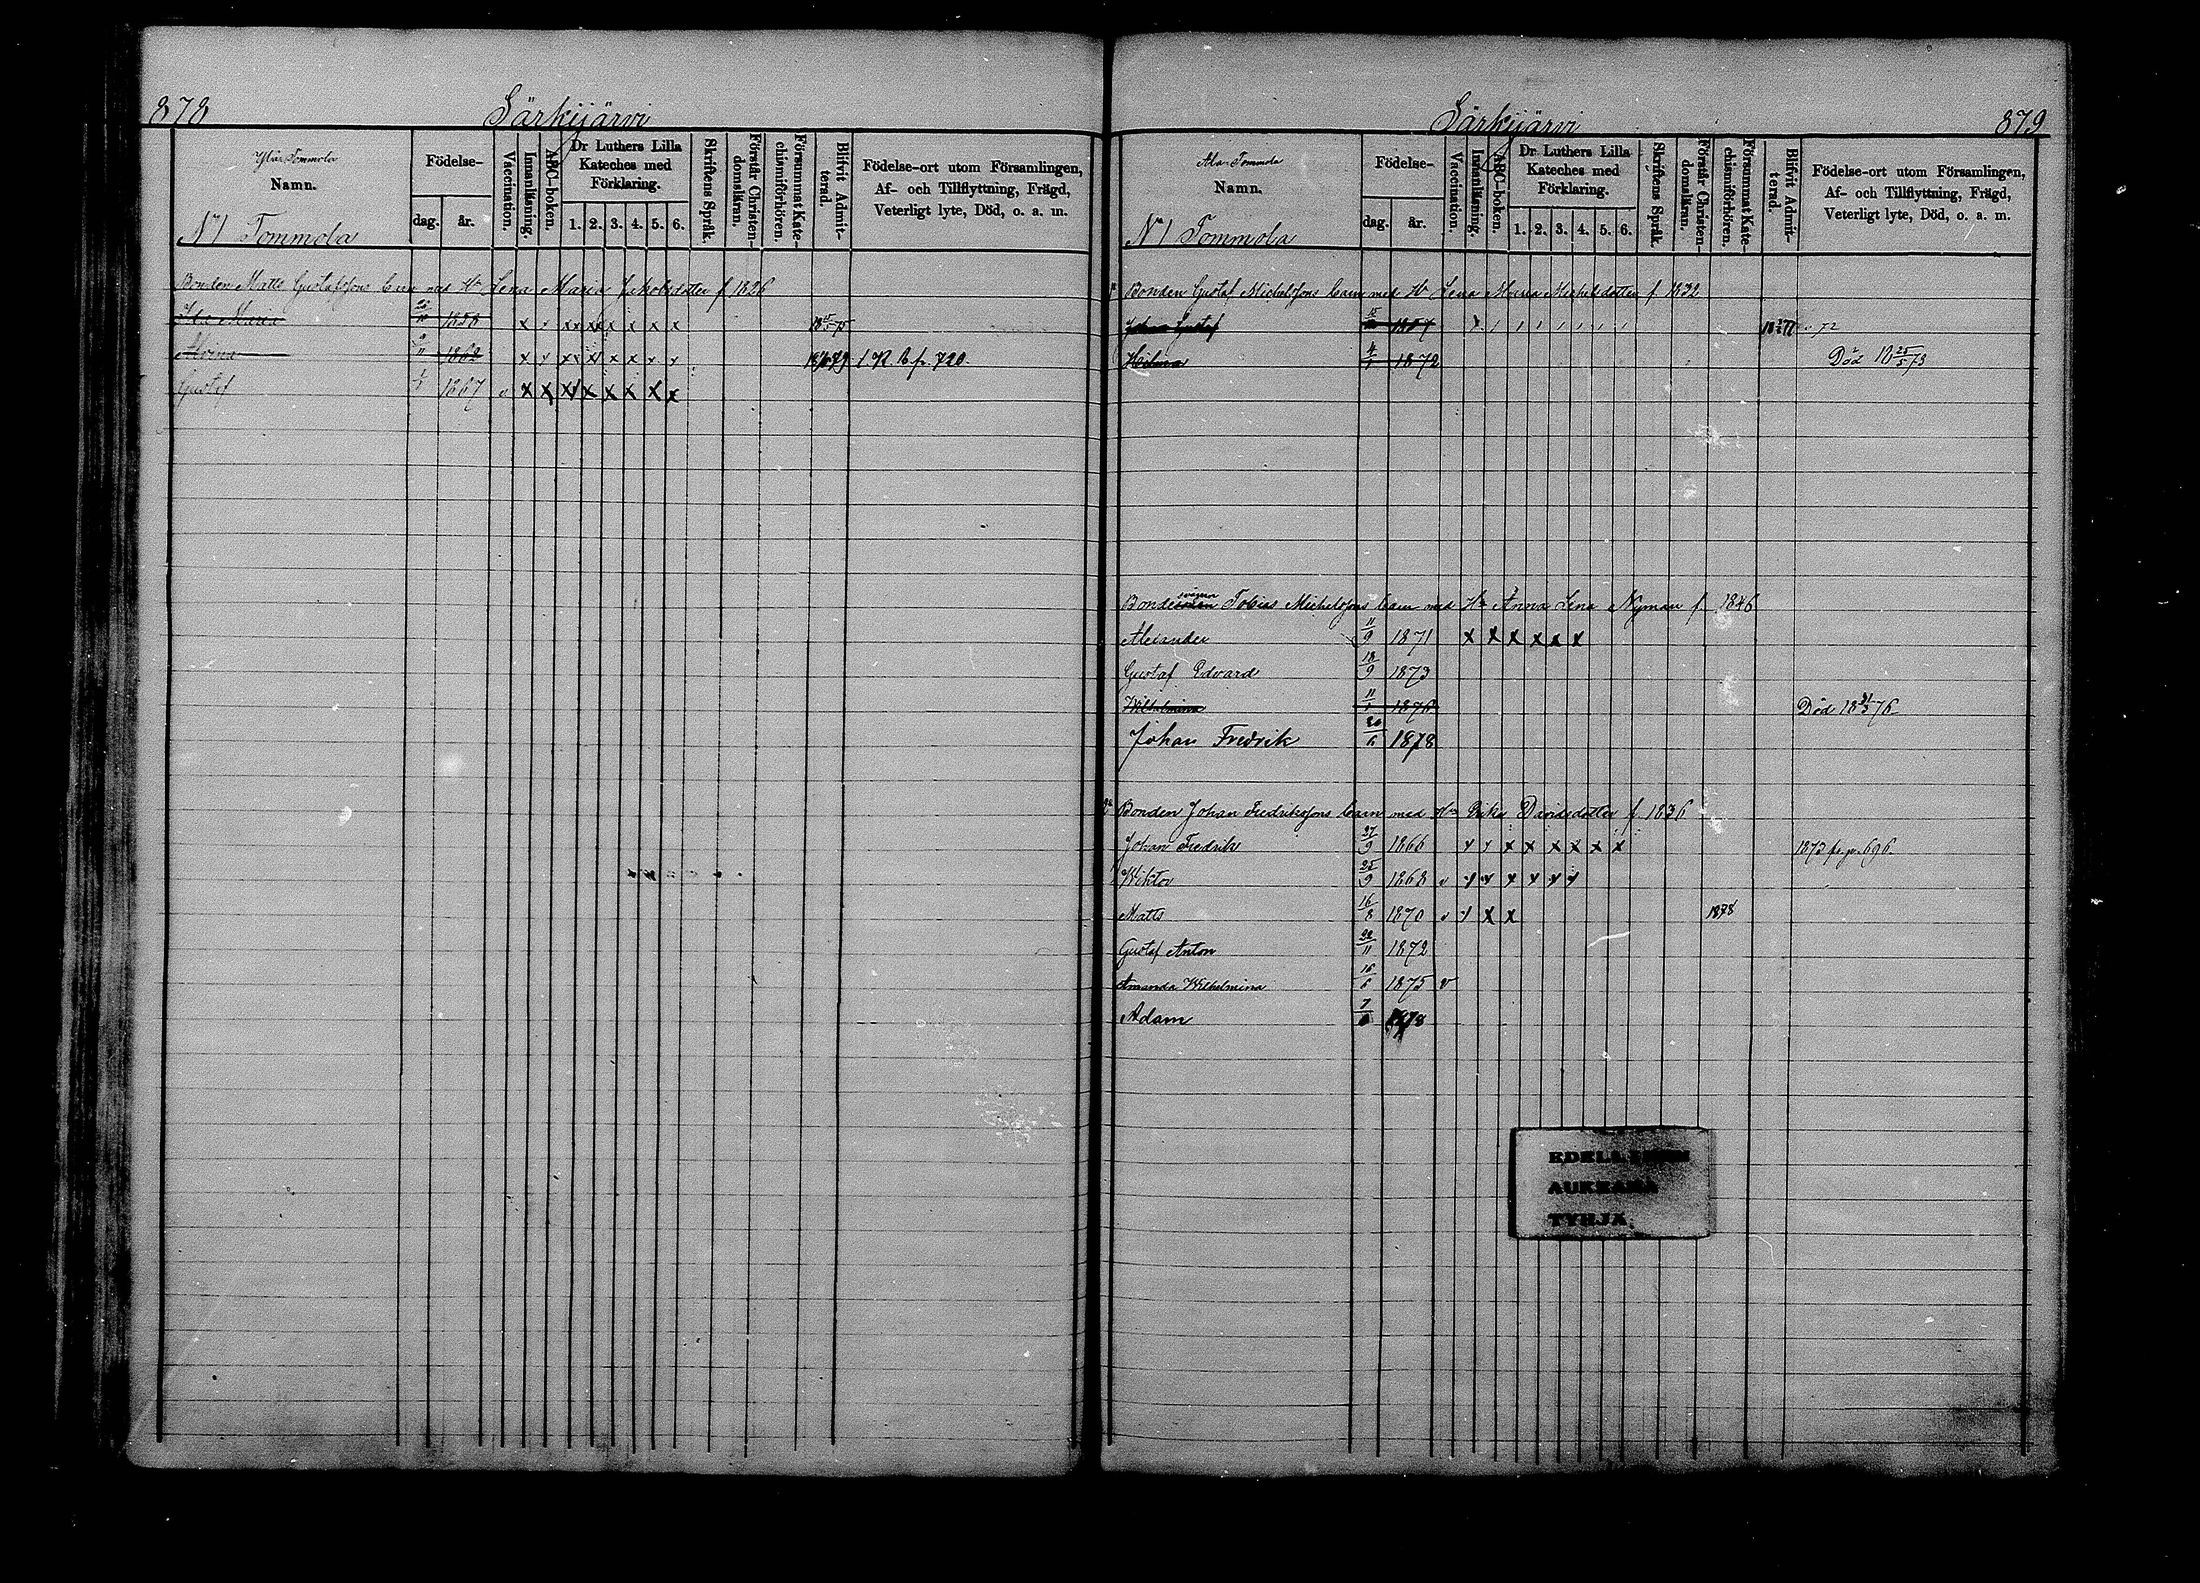 878 Särkijärvi
Yläs Tommola
Namn.
Födelse-
dag. år.
Vaccination.
Innanläsning.
ABC-boken.
Dr Luthers Lilla
Kateches med
Förklaring.
1. 2. 3. 4. 5. 6.
Skriftens Språk.
Förstår Christen-
domsläran.
Försummat Kate-
chismiförhören.
Blifvit Admit-
terad.
Födelse-ort utom Församlingen,
Af- och Tillflyttning, Frägd,
Veterligt lyte, Död, o. a. m.
N 1 Tommola
Bonden Matts Gustafssons barn med Hu Lena Maria Jakobsdotter f 1826
Ida Maria 1858 x x x x x x x x
Alvina 9/11 1862 x x x x x x x x p. 720.
Gustaf 1/1 1867 v x x x x x x x x
Särkijärvi 879
Ala Tommola
Namn.
Födelse-
dag. år.
Vaccination.
Innanläsning.
ABC-boken.
Dr Luthers Lilla
Kateches med
Förklaring.
1. 2. 3. 4. 5. 6.
Skriftens Språk.
Förstår Christen-
domsläran.
Försummat Kate-
chismiförhören.
Blifvit Admit-
terad.
Födelse-ort utom Församlingen,
Af- och Tillflyttning, Frägd,
Veterligt lyte, Död, o. a. m.
N 1 Tommola
Bonden Gustaf Michelssons barn med Hu Lena Maria Michelsdotter f. 1832
Johan Gustaf 1857
Hilma 4/1 1872 Död 18 25/5 73
Tobias Michelssons barn med Hu Anna Lena Nyman f. 1846
Alexander 11/9 1871 x x x x x x
Gustaf Edvard 18/9 1873
Wilhelmina 11/1 1876 Död 18 76
Johan Fredrik 20/6 1878
Bonden Johan Fredrikssons barn med Hu Erika Davidsdotter f. 1836
Johan Fredrik 27/9 1866 x x x x x x x x 1873 p. 696.
Wiktor 25/9 1868 v x x x x x x
Matts 16/8 1870 v x x x 1878
Gustaf Anton 22/11 1872
Amanda Wilhelmina 16/6 1875 v
Adam 7/ 1878
EDELLINEN
AUKEAMA
TYHJÄ